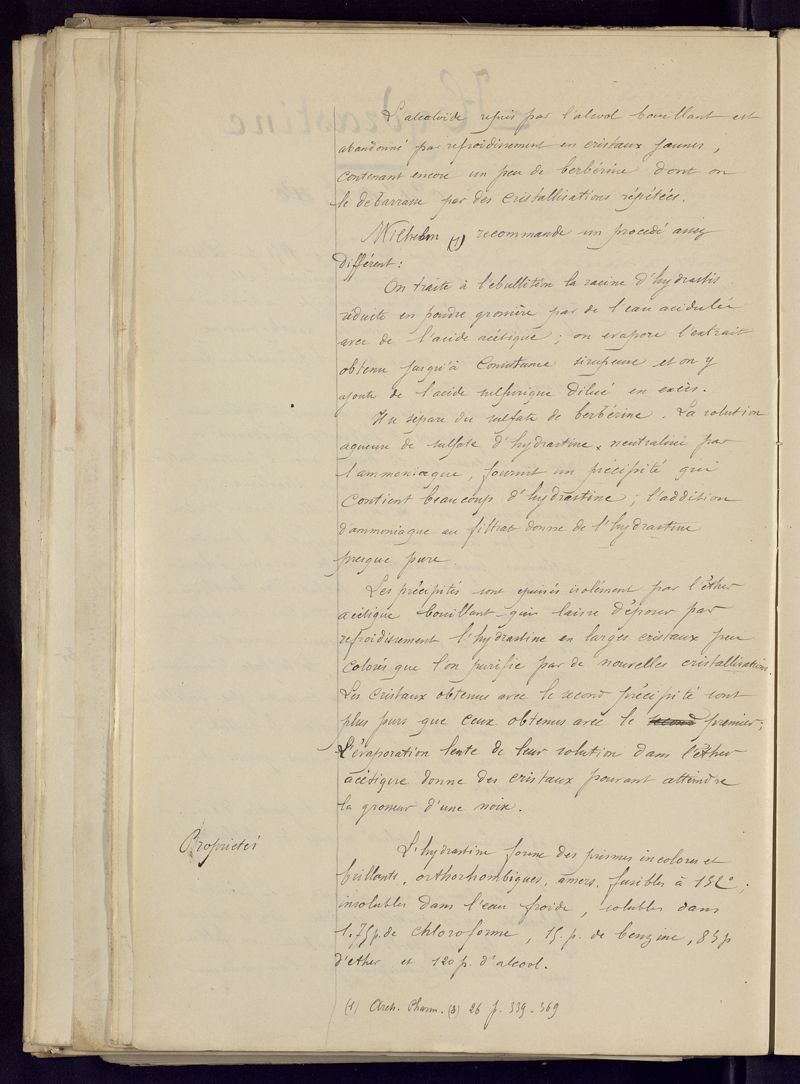 L'alcaloïde repris par l'alcool bouillant est
abandonné par refroidissement en cristaux jaunes,
contenant encore un peu de berbérine dont on
le débarrasse par des cristallisations répétées.
Wilhelm (1) recommande un procédé assez
différent :
On traite à l'ebullition la racine d'hydrastis
réduite en poudre grossière par de l'eau acidulée
avec de l'acide acétique ; on évapore l'extrait
obtenu jusqu'à consistance sirupeuse et on y
ajoute de l'acide sulfurique dilué en excès.
Il se sépare du sulfate de berbérine. La solution
aqueuse de sulfate d'hydrastine, neutralisée par
l'ammoniaque, fournit un précipité qui
contient beaucoup d'hydrastine ; l'addition
d'ammoniaque au filtrat donne de l'hydrastine
presque pure
Les précipités sont épuisés isolément par l'éther
acétique bouillant qui laisse déposer par
refroidissement l'hydrastine en larges cristaux peu
colorés que l'on purifie par de nouvelles cristallisations
Les cristaux obtenus avec le second précipité sont
plus purs que ceux obtenus avec le second premier ;
L'évaporation lente de leur solution dans l'éther
acétique donne des cristaux pouvant atteindre
la grosseur d'une noix.
Propriétés
L'hydrastine forme des prismes incolores et
brillants, orthorhombiques, amers, fusibles à 132° ;
insolubles dans l'eau froide, solubles dans
1.75 p. de chloroforme, 15. p. de benzine, 83 p
d'éther et 120 p. d'alcool.
(1) Arch. Pharm. (3) 26 p. 339-369